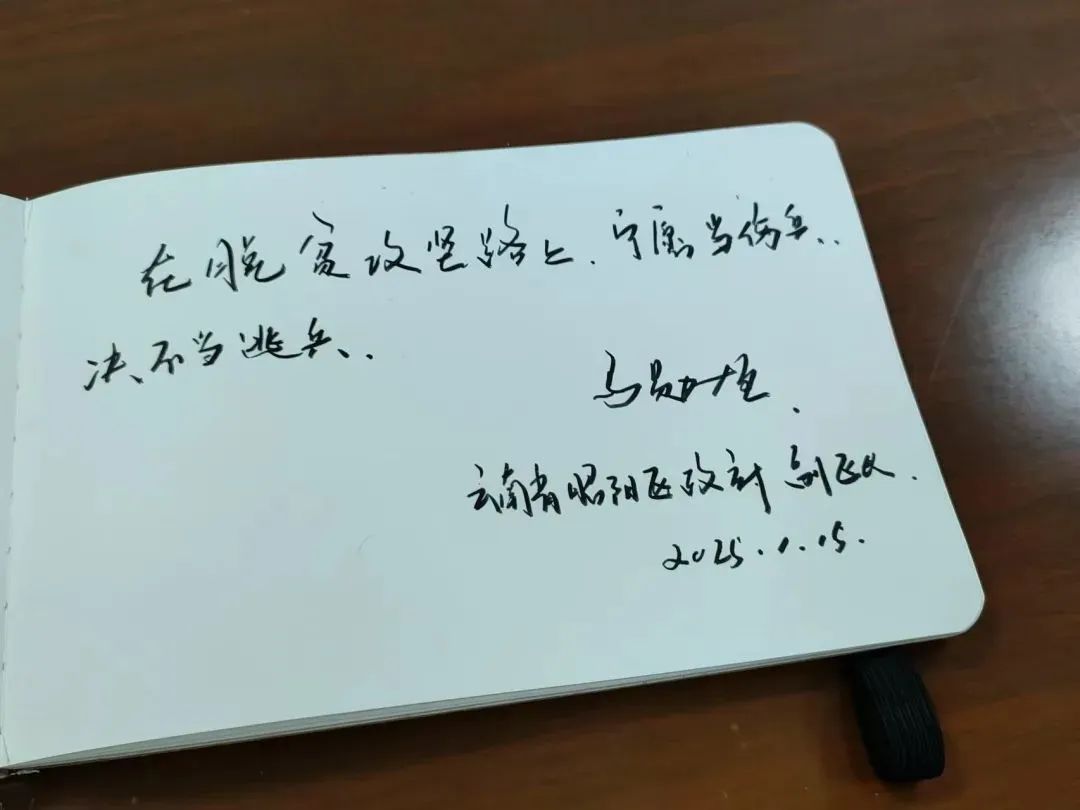 在脱贫攻坚路上、宁愿当伤兵、
决不当逃兵、
马
云南省昭阳区政府 副区长.
2025.1.15.